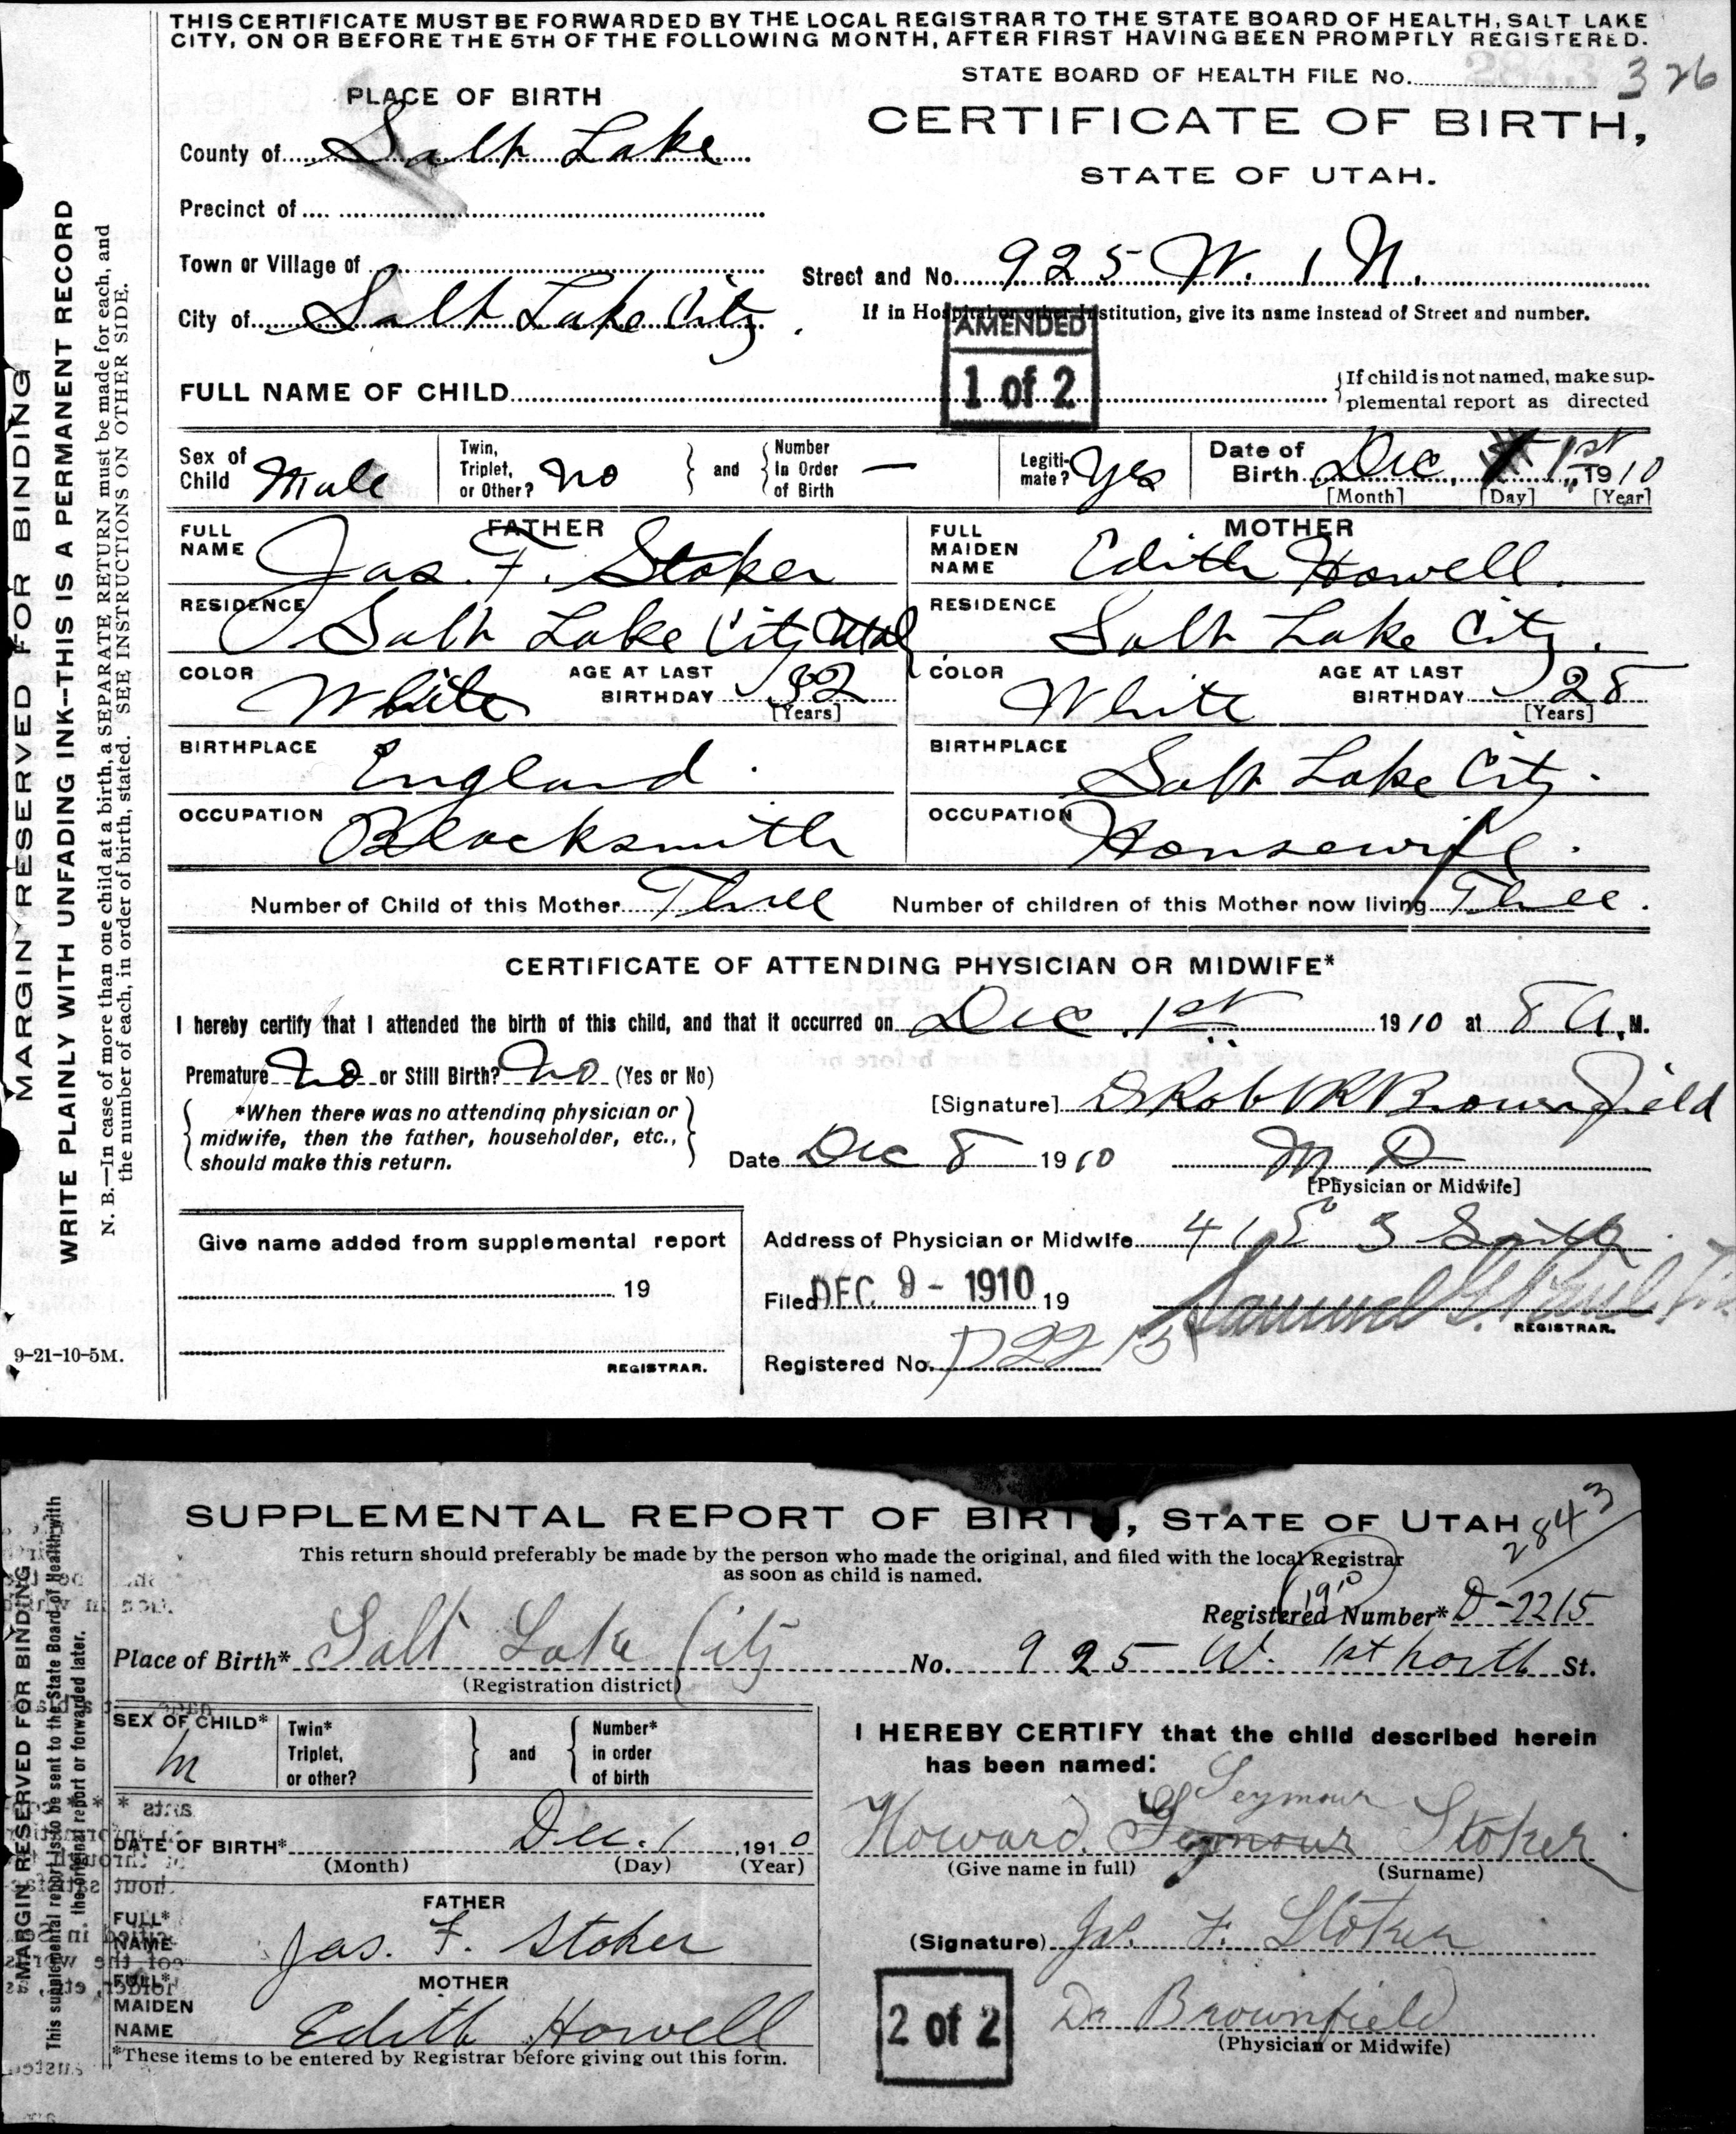 THIS CERTIFICATE MUST BE FORWARDED BY THE LOCAL REGISTRAR TO THE STATE BOARD OF HEALTH, SALT LAKE
CITY, ON OR BEFORE THE 5TH OF THE FOLLOWING MONTH, AFTER FIRST HAVING BEEN PROMPTLY REGISTERED.
STATE BOARD OF HEALTH FILE No. 2843 326
PLACE OF BIRTH
CERTIFICATE OF BIRTH,
STATE OF UTAH.
County of Salt Lake
Precinct of
Town or Village of
Street and No. 925 W. 1 N.
City of Salt Lake City
If in Hospital or other Institution, give its name instead of Street and number.
AMENDED
1 of 2
FULL NAME OF CHILD
If child is not named, make sup-
plemental report as directed
Sex of Child Male
Twin, Triplet, or Other? No
and
Number in Order of Birth —
Legiti-mate? Yes
Date of Birth Dec. 1st 1910
[Month] [Day] [Year]
FATHER
FULL NAME Jas. F. Stoker
MOTHER
FULL MAIDEN NAME Edith Howell
RESIDENCE Salt Lake City Utah
RESIDENCE Salt Lake City.
COLOR White
AGE AT LAST BIRTHDAY 32 [Years]
COLOR White
AGE AT LAST BIRTHDAY 28 [Years]
BIRTHPLACE England.
BIRTHPLACE Salt Lake City.
OCCUPATION Blacksmith
OCCUPATION Housewife.
Number of Child of this Mother Three
Number of children of this Mother now living Three.
CERTIFICATE OF ATTENDING PHYSICIAN OR MIDWIFE*
I hereby certify that I attended the birth of this child, and that it occurred on Dec. 1st 1910 at 8 A.M.
Premature No or Still Birth? No (Yes or No)
*When there was no attending physician or
midwife, then the father, householder, etc.,
should make this return.
[Signature] Brownfield
Date Dec 8 1910
M D
[Physician or Midwife]
Give name added from supplemental report
19
REGISTRAR.
Address of Physician or Midwife 415 3 South
Filed DEC 9 - 1910 19
Samuel G.
REGISTRAR.
Registered No. D2215
9-21-10-5M.
MARGIN RESERVED FOR BINDING
WRITE PLAINLY WITH UNFADING INK--THIS IS A PERMANENT RECORD
N. B.—In case of more than one child at a birth, a SEPARATE RETURN must be made for each, and
the number of each, in order of birth, stated. SEE INSTRUCTIONS ON OTHER SIDE.
SUPPLEMENTAL REPORT OF BIRTH, STATE OF UTAH
2843
This return should preferably be made by the person who made the original, and filed with the local Registrar
as soon as child is named.
1910
Registered Number* D-2215
Place of Birth* Salt Lake City No. 925 W. 1st North St.
(Registration district)
SEX OF CHILD* M
Twin* Triplet, or other?
and
Number* in order of birth
I HEREBY CERTIFY that the child described herein
has been named:
Seymour
Howard Seymour Stoker
(Give name in full) (Surname)
DATE OF BIRTH* Dec. 1, 1910
(Month) (Day) (Year)
FATHER
FULL* NAME Jas. F. Stoker
(Signature) Jas. F. Stoker
MOTHER
FULL* MAIDEN NAME Edith Howell
2 of 2
Dr Brownfield
(Physician or Midwife)
*These items to be entered by Registrar before giving out this form.
MARGIN RESERVED FOR BINDING
This supplemental report is to be sent to the State Board of Health with
the original report or forwarded later.